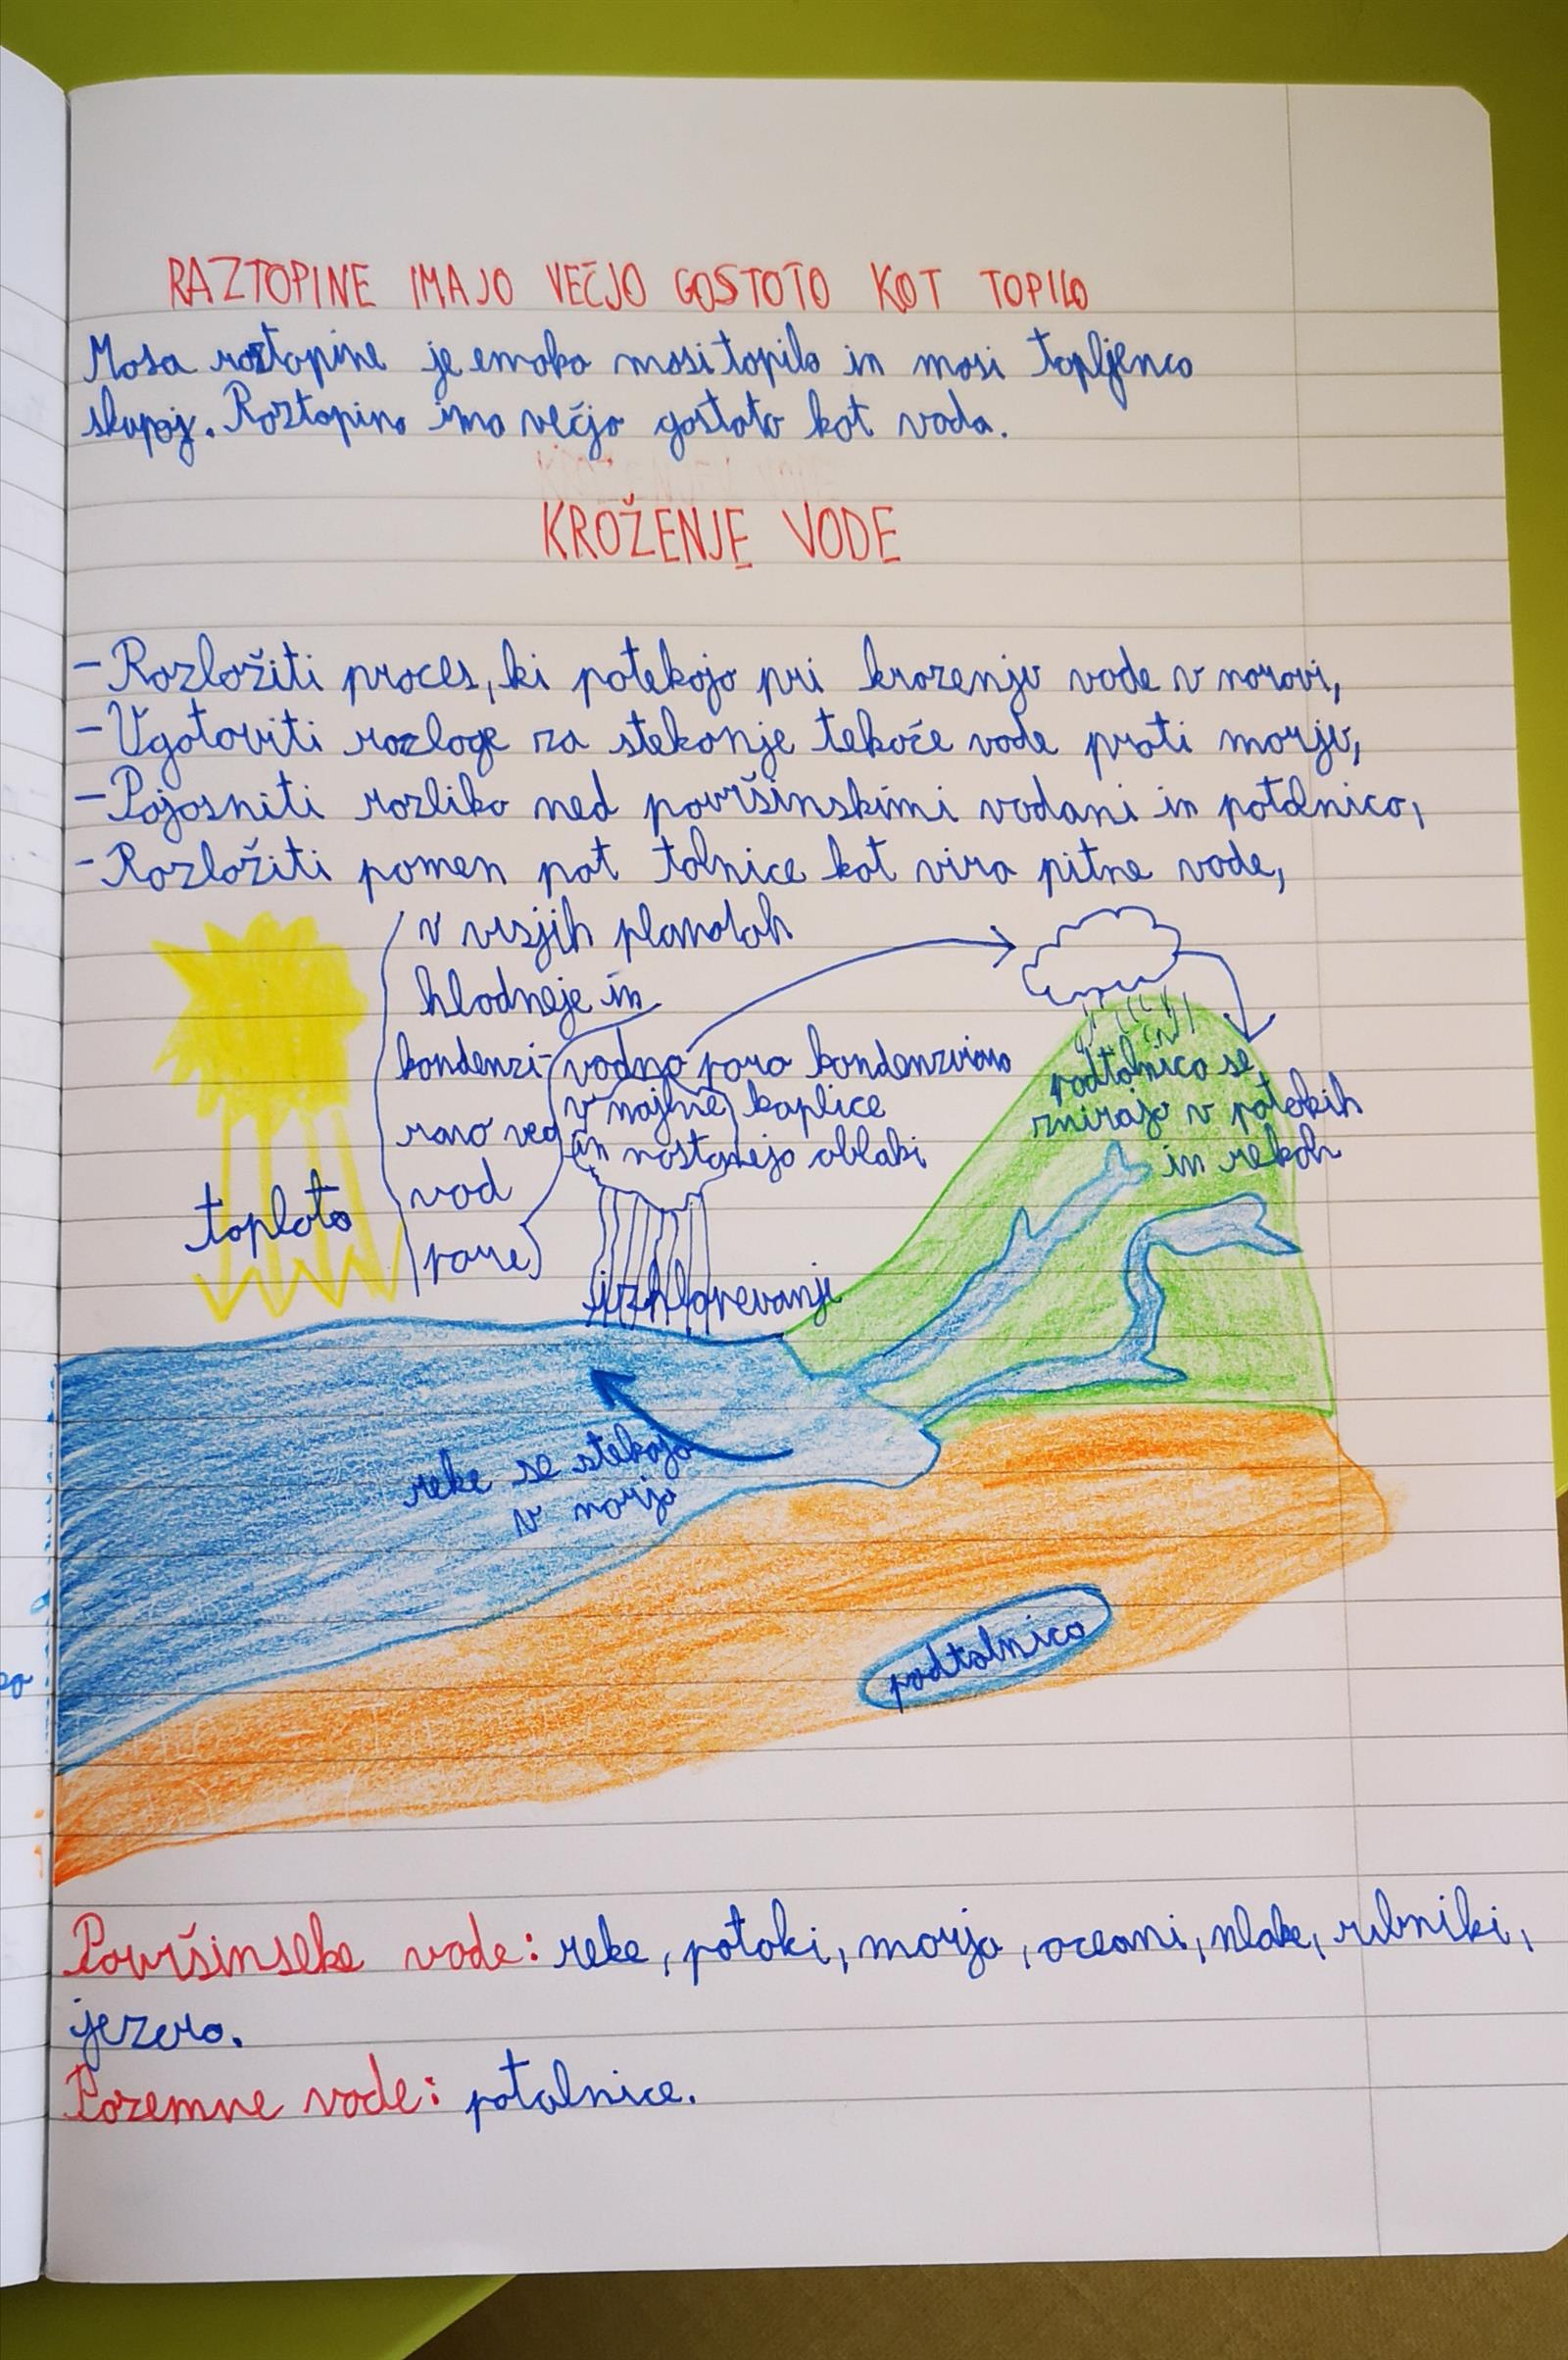 RAZTOPINE IMAJO VEČJO GOSTOTO KOT TOPILO
Masa raztopine je enaka masi topila in masi topljenca
skupaj. Raztopina ima večjo gostoto kot voda.
KROŽENJE VODE
- Razložiti proces, ki potekajo pri krozenju vode v naravi,
- Ugotoviti razloge za stekanje tekoče vode proti morju,
- Pojasniti razliko med površinskimi vodami in potalnico,
- Razložiti pomen pot talnice kot vira pitne vode,
v visjih planotah
hladneje in
kondenzi-
rano več
vod
pare
vodna para kondenzirana
v majhne kaplice
in nastanejo oblaki
podtalnica se
zbirajo v potokih
in rekah
toplota
izhlapevanje
reke se stekajo
v morja
podtalnica
Površinske vode: reke, potoki, morja, oceani, mlake, ribniki,
jezera.
Pozemne vode: potalnice.